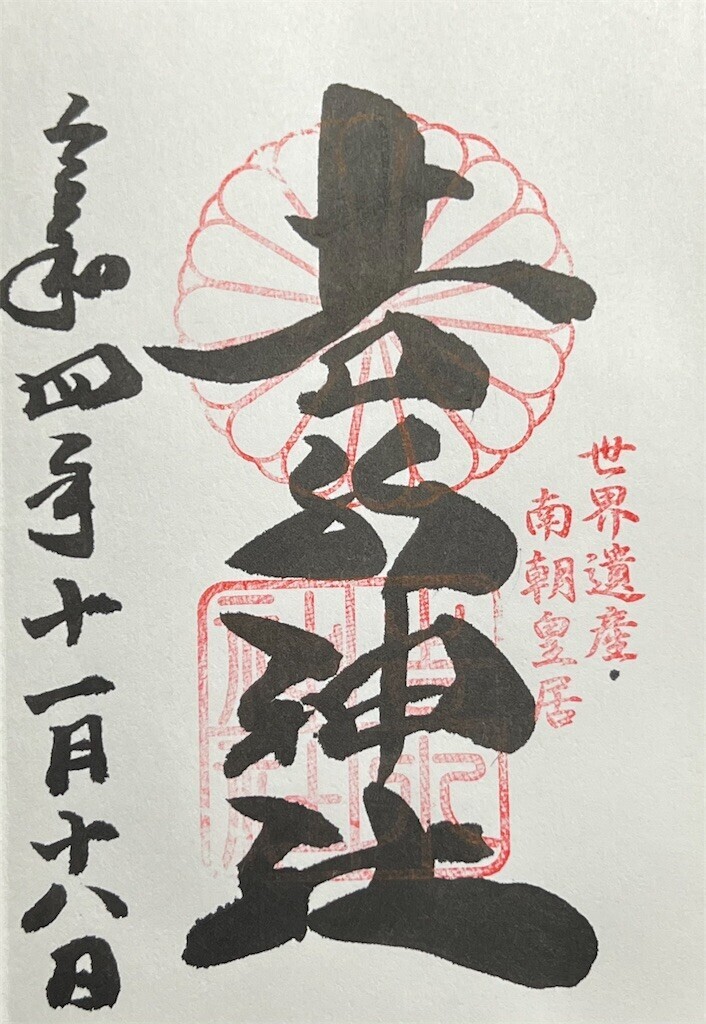 世界遺産
南朝皇居
吉水神社
令和四年十一月十八日